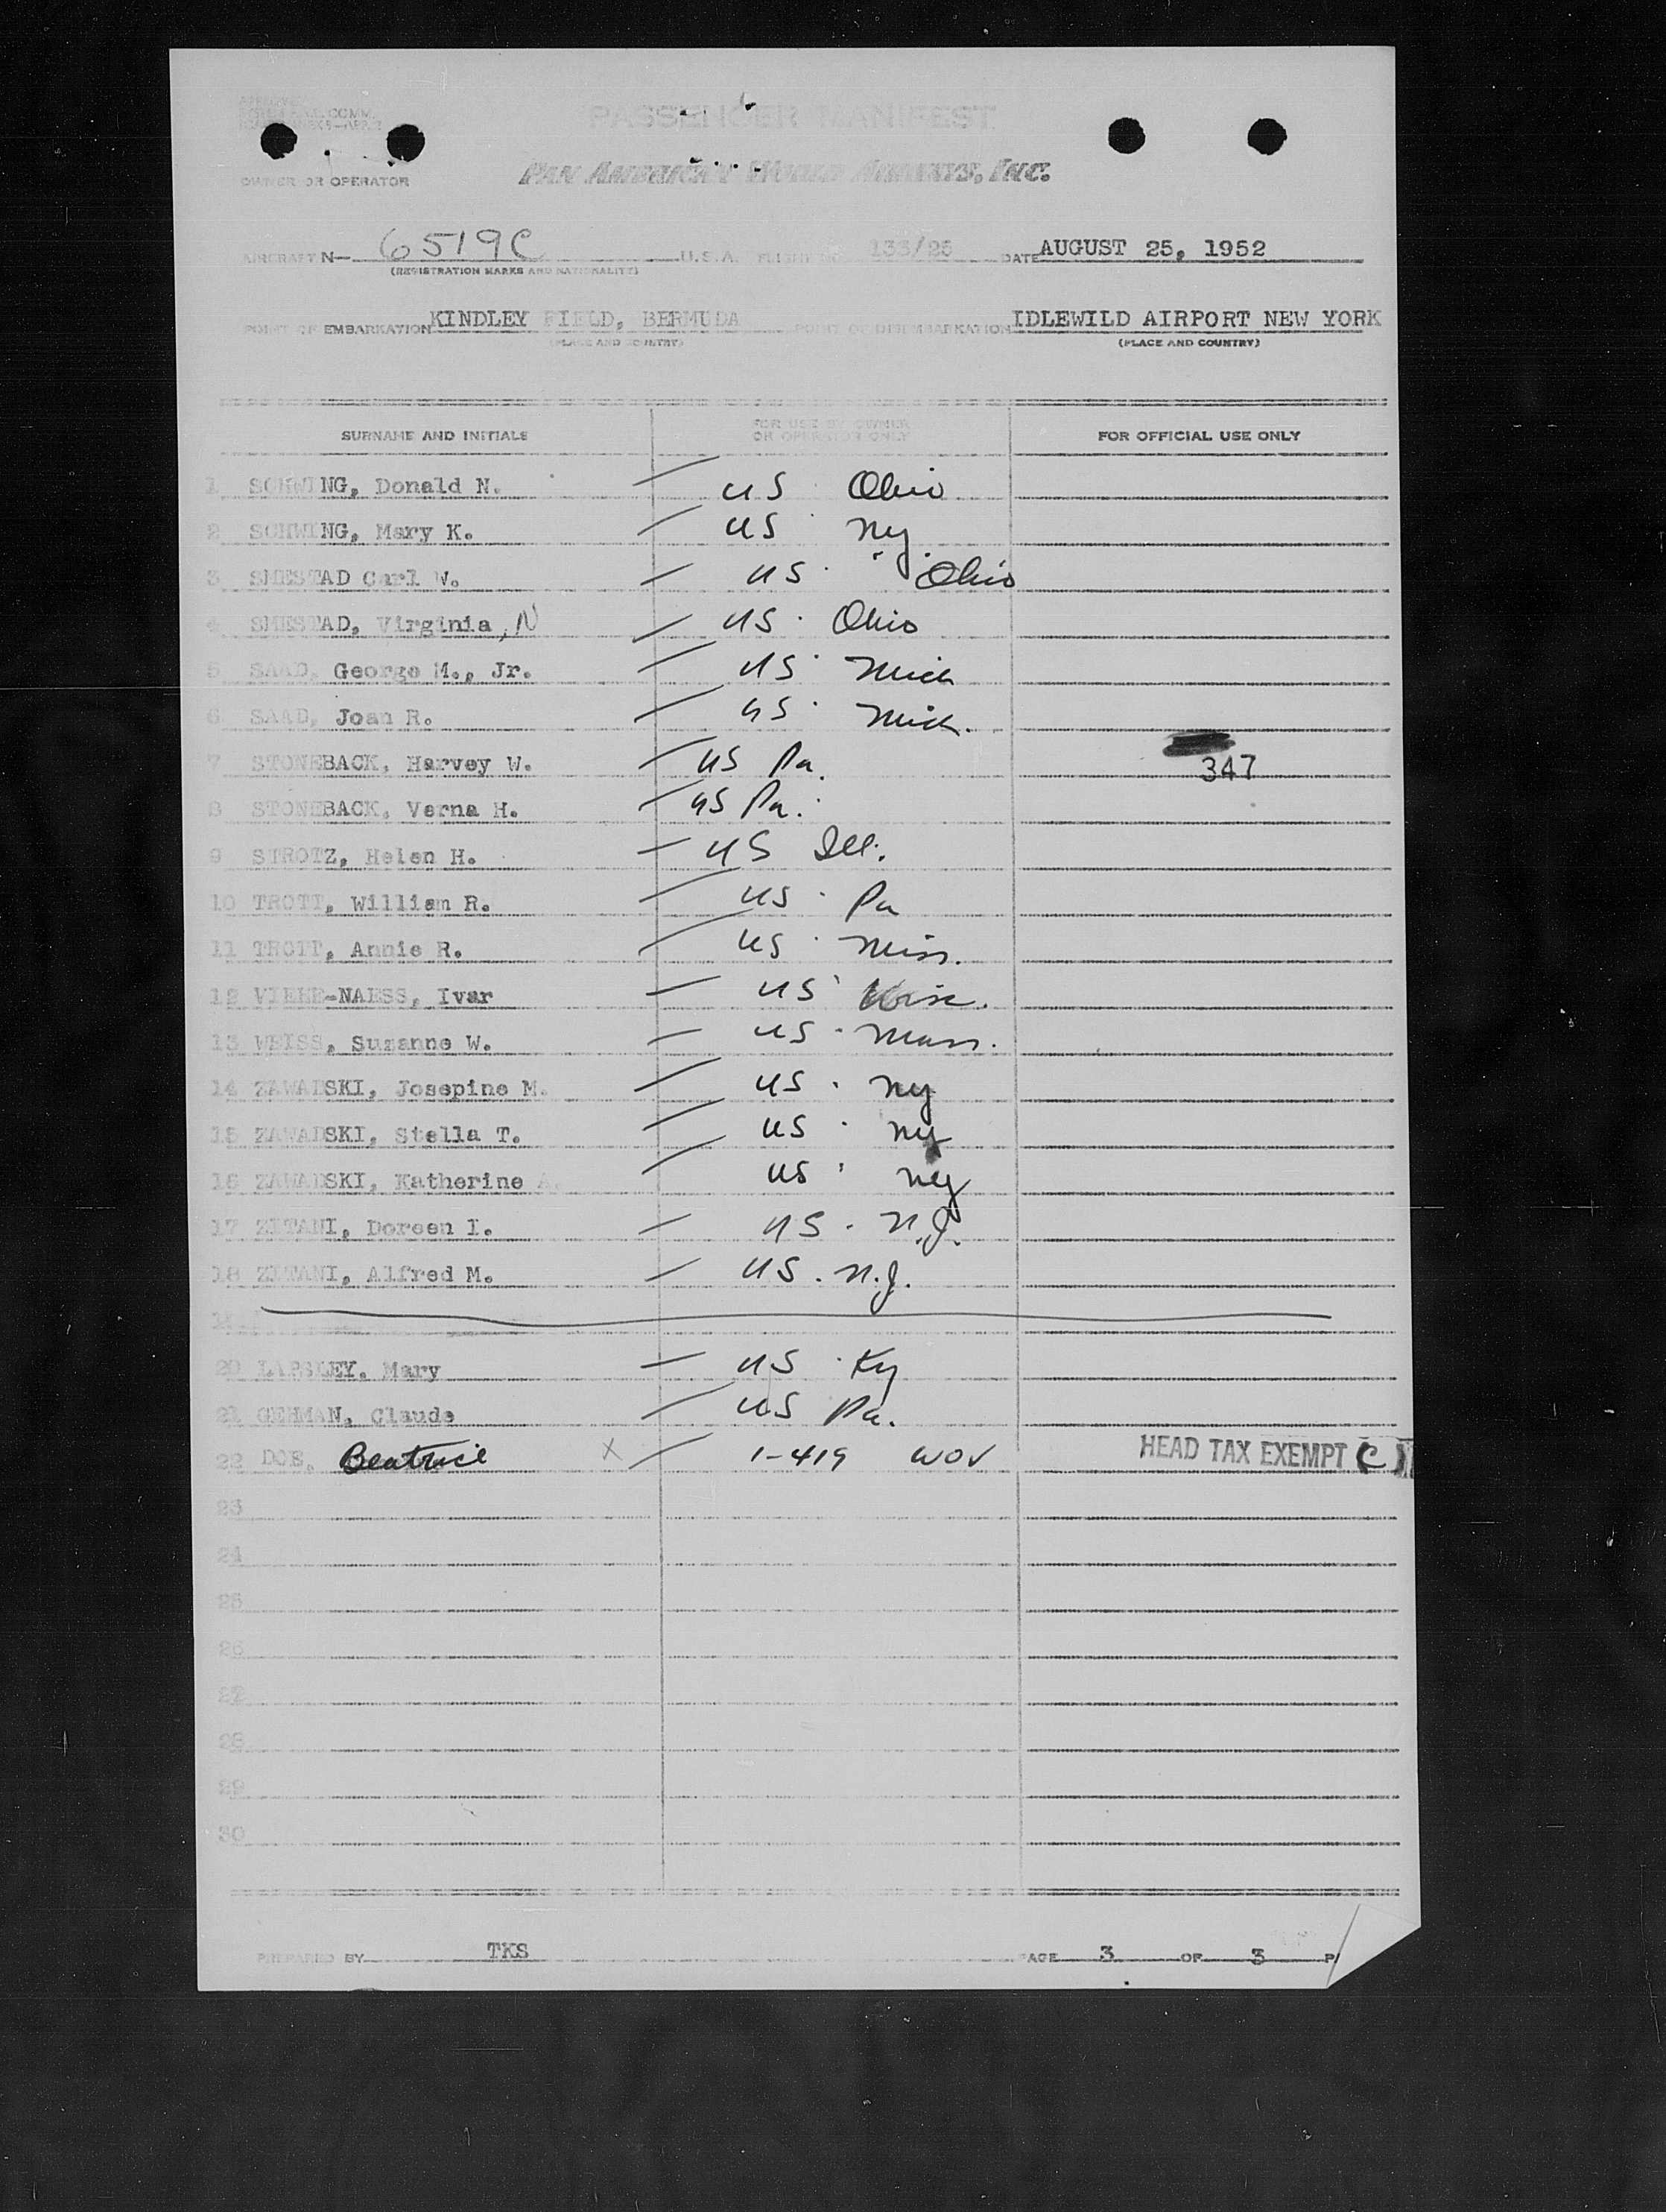 PASSENGER MANIFEST
OWNER OR OPERATOR
PAN AMERICAN WORLD AIRWAYS, INC.
AIRCRAFT N— 6519C U.S.A. FLIGHT NO. 133/25 DATE AUGUST 25, 1952
(REGISTRATION MARKS AND NATIONALITY)
POINT OF EMBARKATION KINDLEY FIELD, BERMUDA POINT OF DISEMBARKATION IDLEWILD AIRPORT NEW YORK
(PLACE AND COUNTRY) (PLACE AND COUNTRY)
SURNAME AND INITIALS FOR USE BY OWNER OR OPERATOR ONLY FOR OFFICIAL USE ONLY
1 SCHWING, Donald N. US Ohio
2 SCHWING, Mary K. US NY
3 SMESTAD Carl W. US Ohio
4 SMESTAD, Virginia, N US Ohio
5 SAAD, George M., Jr. US Mich
6 SAAD, Joan R. US Mich.
7 STONEBACK, Harvey W. US Pa. 347
8 STONEBACK, Verna H. US Pa.
9 STROTZ, Helen H. US Ill.
10 TROTT, William R. US Pa
11 TROTT, Annie R. US Miss.
12 VIEHE-NAESS, Ivar US Wisc.
13 WEISS, Suzanne W. US Mass.
14 ZAWADSKI, Josepine M. US NY
15 ZAWADSKI, Stella T. US NY
16 ZAWADSKI, Katherine A. US NY
17 ZITANI, Doreen I. US N.J.
18 ZITANI, Alfred M. US. N.J.
19
20 LAPSLEY, Mary US Ky
21 GEHMAN, Claude US Pa.
22 DOE, Beatrice X 1-419 WOV HEAD TAX EXEMPT (C)
23
24
25
26
27
28
29
30
PREPARED BY TKS PAGE 3 OF 3